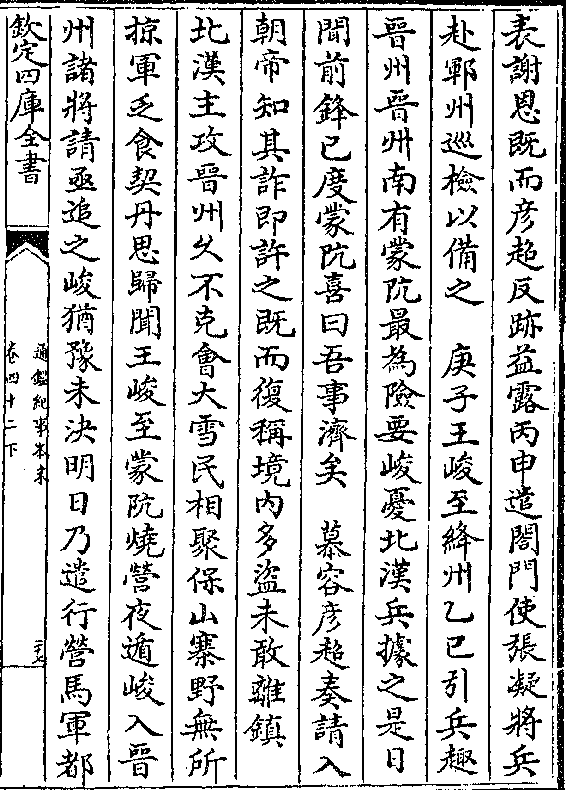 表謝恩既而彦超反跡益露丙申遣閤門使張凝將兵
赴鄆州巡檢以備之　庚子王峻至絳州乙巳引兵趣
晉州晉州南有蒙阬最為險要峻憂北漢兵據之是日
聞前鋒已度蒙阬喜曰吾事濟矣　慕容彦超奏請入
朝帝知其詐即許之既而復稱境内多盜未敢離鎮
北漢主攻晉州久不克會大雪民相聚保山寨野無所
掠軍乏食契丹思歸聞王峻至蒙阬燒營夜遁峻入晉
州諸將請亟追之峻猶豫未決明日乃遣行營馬軍都
欽定四庫全書
通鑑紀事本末
卷四十二下